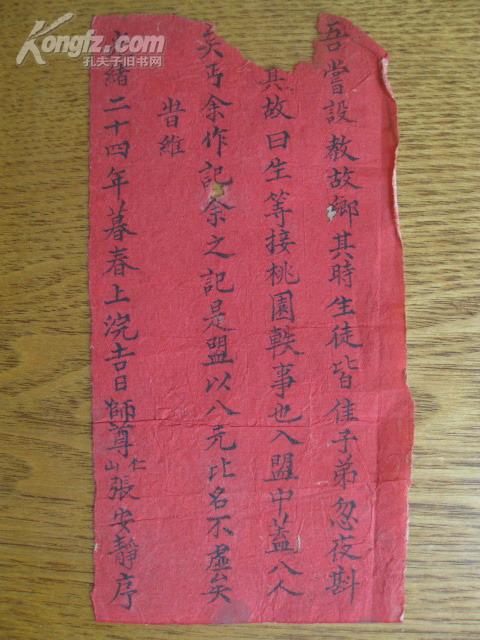 吾嘗設教故鄉其時生徒皆佳子弟忽夜斟
其故曰生等接桃園軼事也入盟中蓋八人
矣丐余作記余之記是盟以八元比名不虛矣
昔維
緒二十四年暮春上浣吉日師尊仁山張安靜序
Kongfz.com
孔夫子旧书网